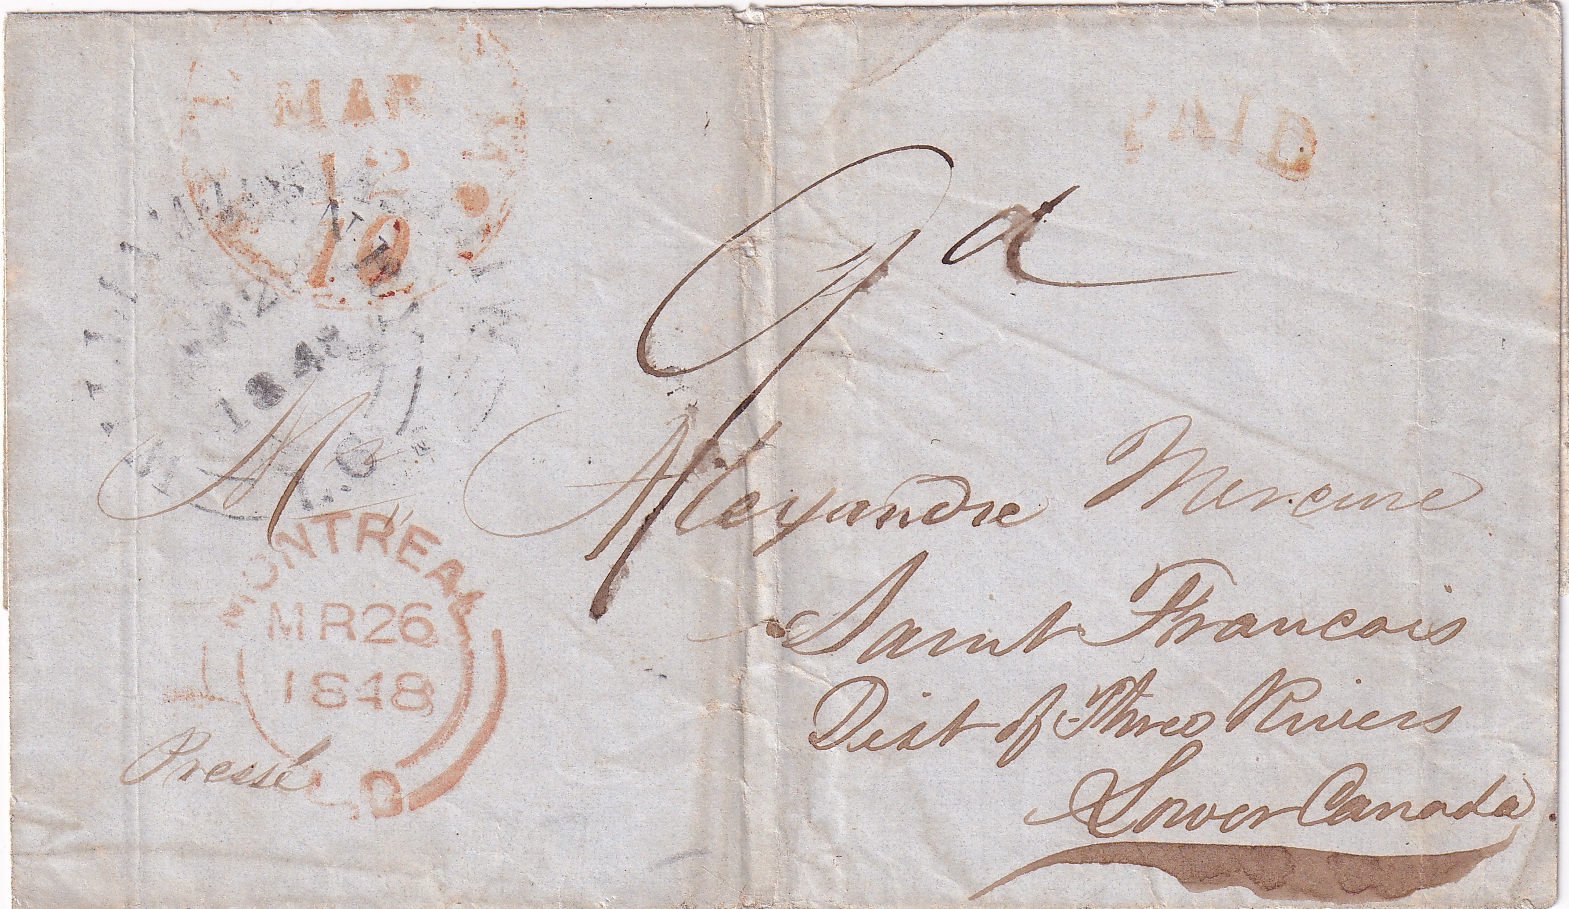 MAR
12
10
PAID
9d
1848
L.C
Mr Alexandre Mercure
MONTREAL
MR 26
1848
L.C
Saint Francois
Dist of Three Rivers
Lower Canada
Pressé